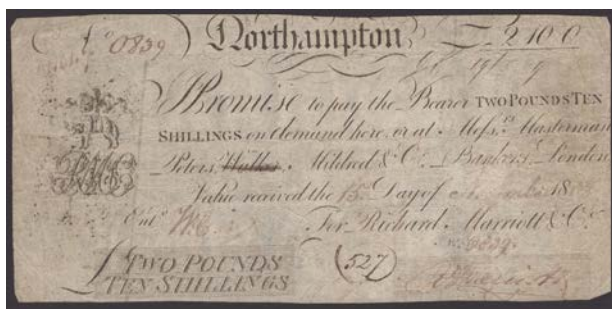 No 0839 Northampton £2-10-0
I Promise to pay the Bearer TWO POUNDS TEN
SHILLINGS on demand here or at Messrs Masterman
Peters Walker Mildred & Co. Bankers London
Value received the 15 Day of 18
Entd For Richard Marriott & Co.
No 0839
£ TWO POUNDS
TEN SHILLINGS
(527)